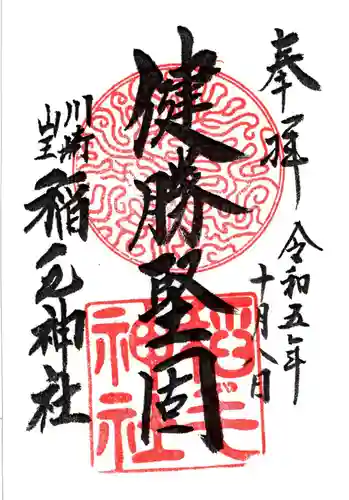 奉拝
令和五年
十月八日
健勝堅固
川崎町
山王
稲毛神社
稲毛
神社